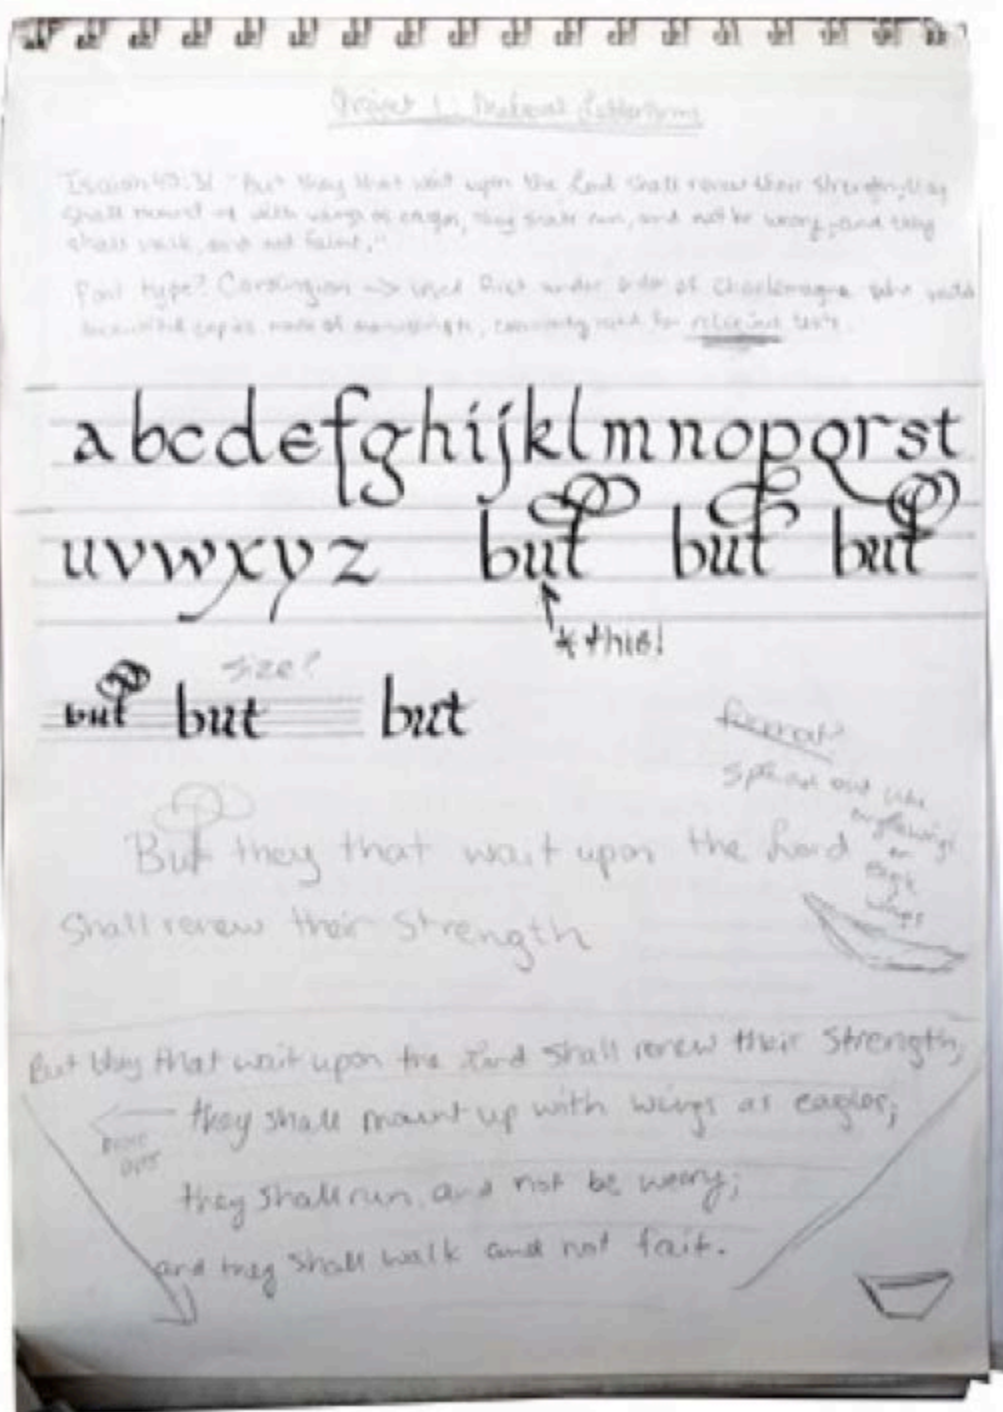 Project 1: Medieval Letterforms
Isaiah 40:31 "But they that wait upon the Lord shall renew their strength; they
shall mount up with wings as eagles, they shall run, and not be weary; and they
shall walk, and not faint."
Font type? Carolingian → used first under order of Charlemagne who
beautiful copies made of manuscripts, commonly used for religious texts.
a b c d e f g h i j k l m n o p q r s t
u v w x y z but but but
* this!
size?
but but but
format?
Spread out like
eagle wings
or
eagle
wings
But they that wait upon the Lord
Shall renew their Strength
But they that wait upon the Lord shall renew their strength,
they shall mount up with wings as eagles;
they shall run, and not be weary;
and they shall walk and not fait.